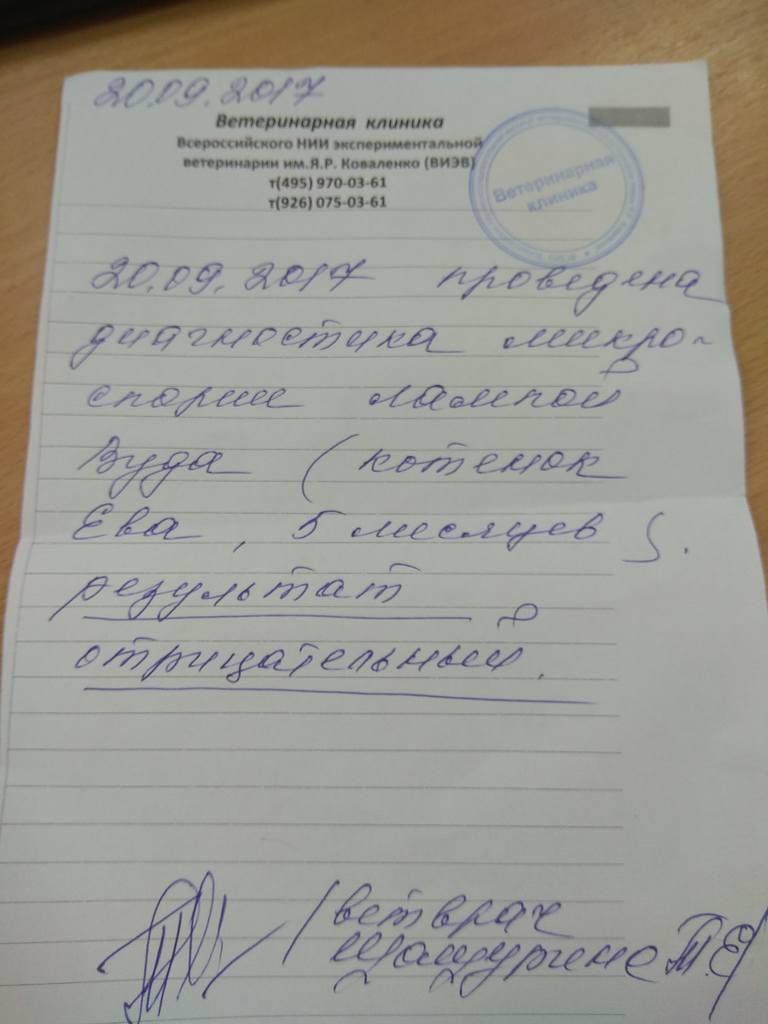 20.09.2017
Ветеринарная клиника
Всероссийского НИИ экспериментальной
ветеринарии им.Я.Р. Коваленко (ВИЭВ)
т(495) 970-03-61
т(926) 075-03-61
Ветеринарная
клиника
20.09.2017 проведена
диагностика микро-
спории лампой
Вуда (котенок
Ева, 5 месяцев).
результат
отрицательный.
/ветврач
Т.Е/